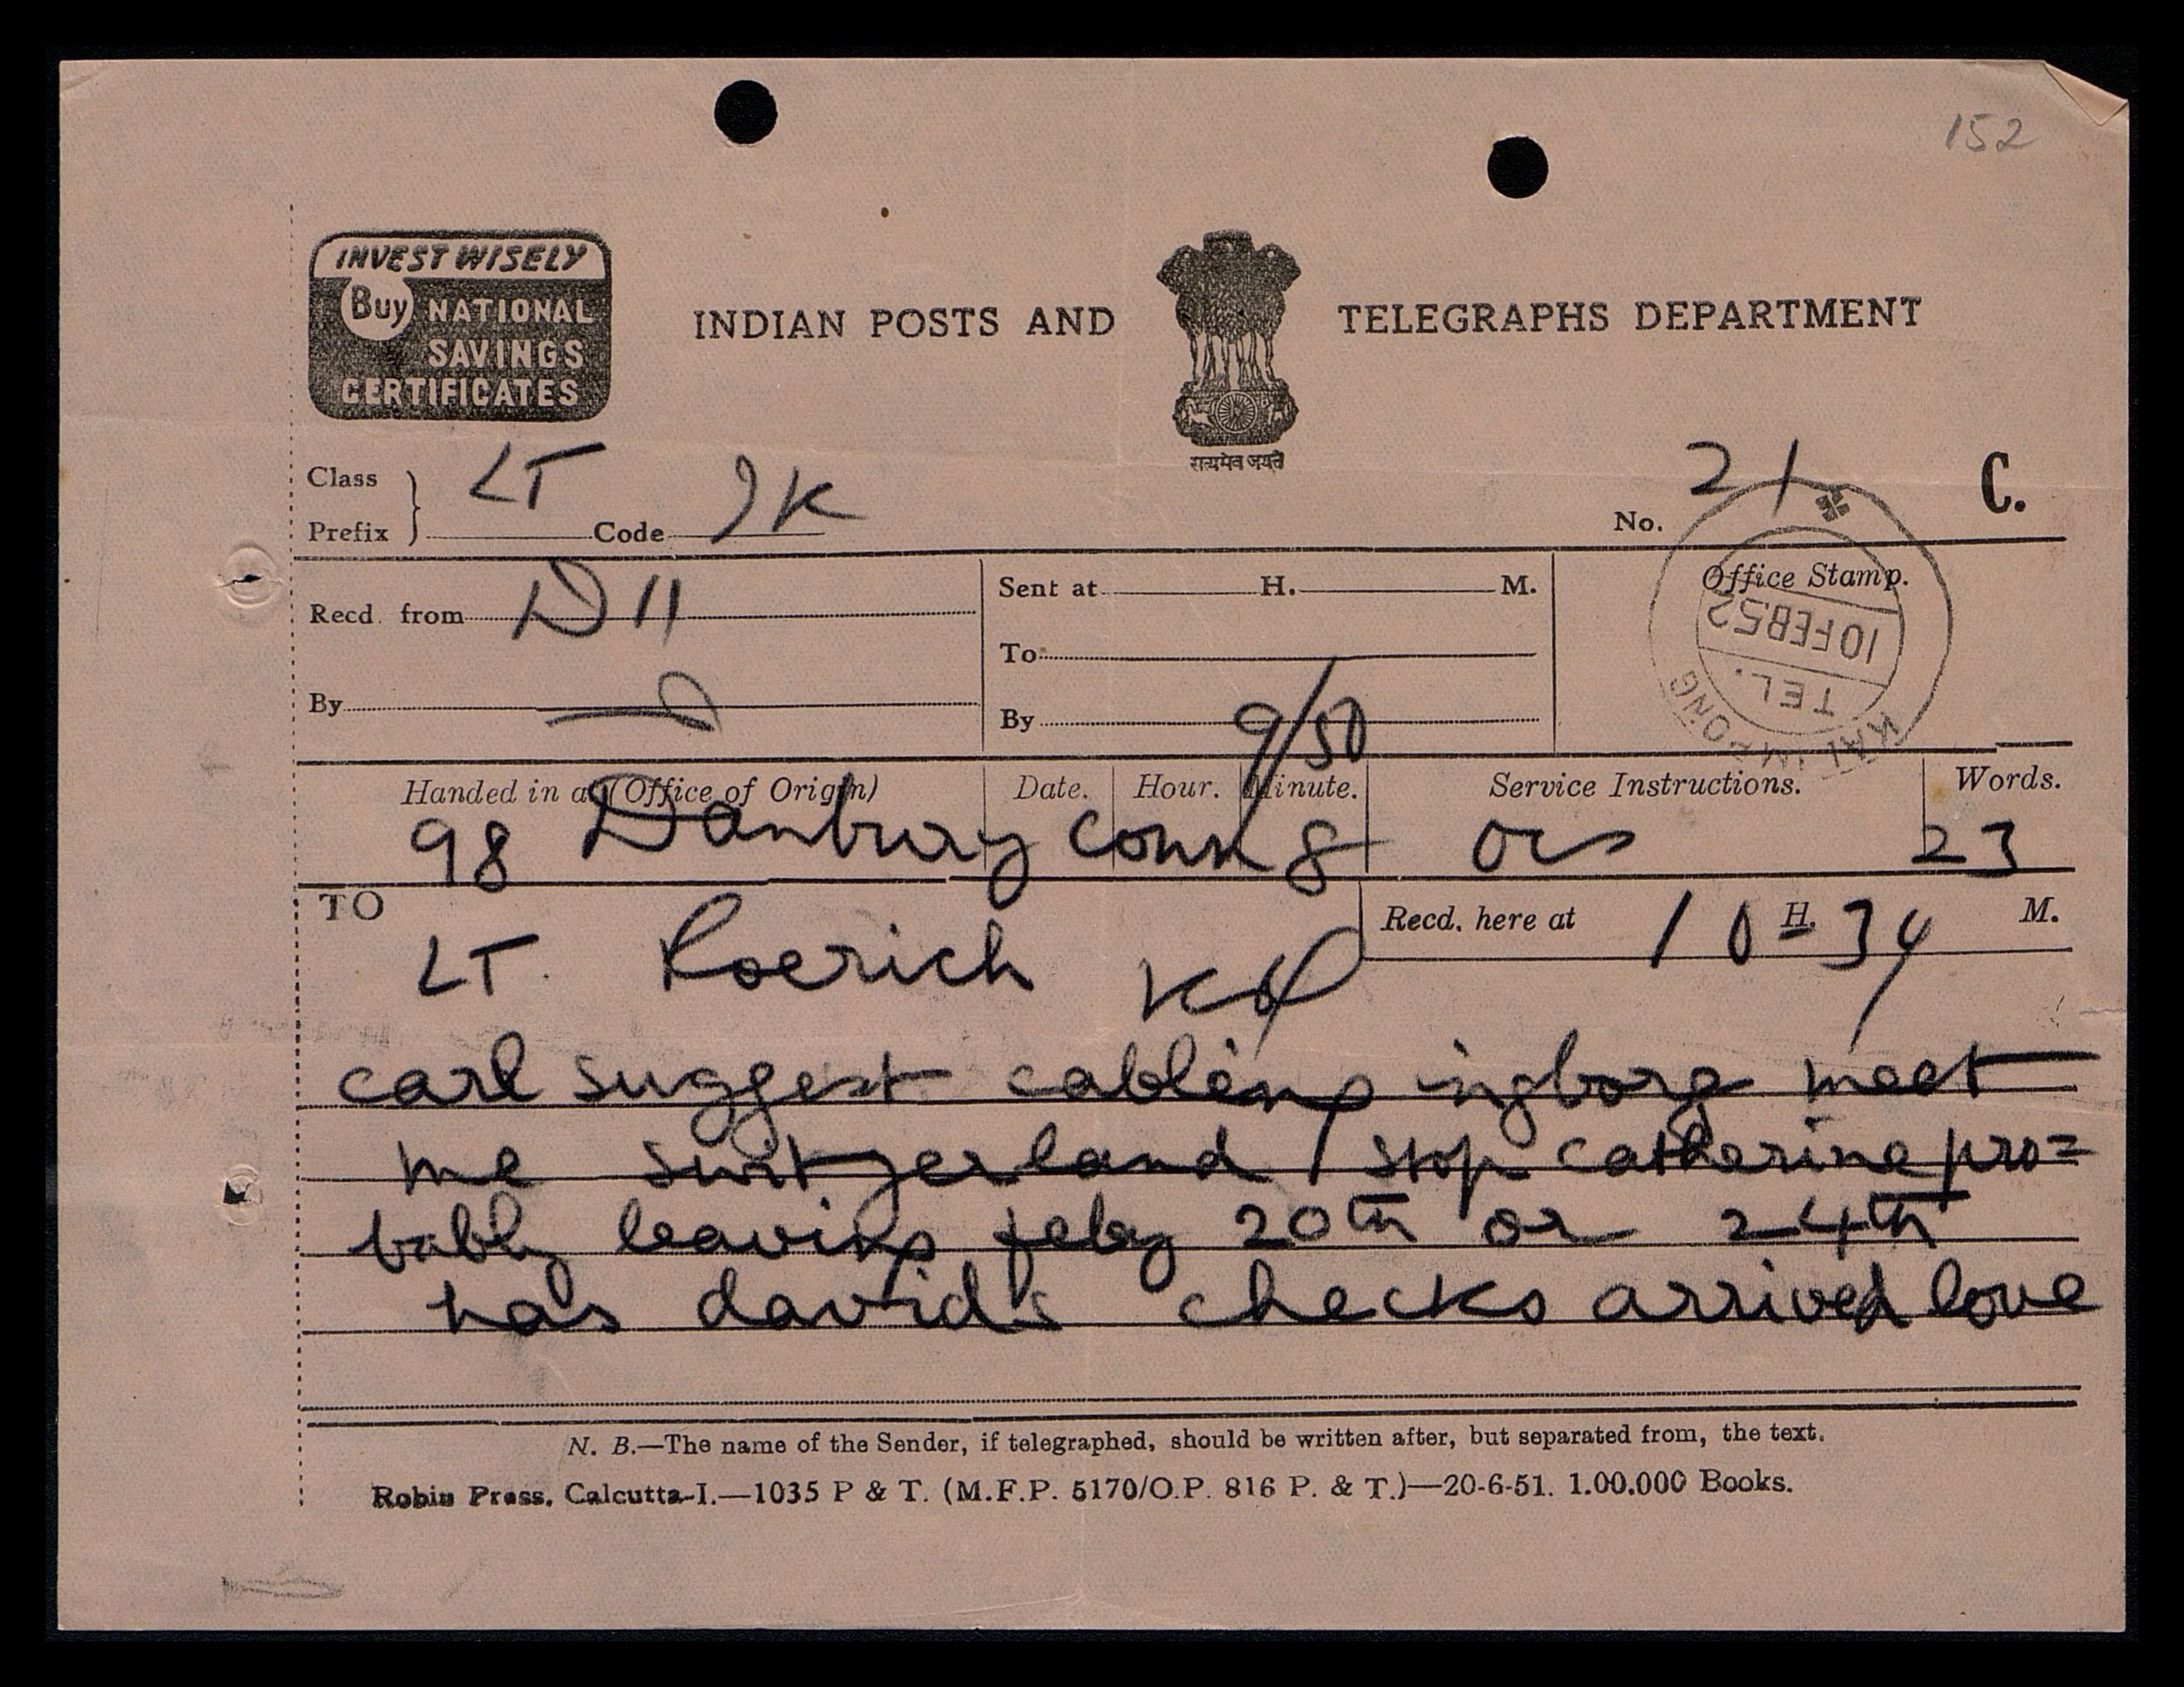 152
INVEST WISELY
Buy NATIONAL
SAVINGS
CERTIFICATES
INDIAN POSTS AND TELEGRAPHS DEPARTMENT
सत्यमेव जयते
Class
Prefix LT Code JK
No. 21 C.
Recd. from DH
By
Sent at H. M.
To
By 9/50
Office Stamp.
KALIMPONG
TEL.
10 FEB 52
Handed in at (Office of Origin) Date. Hour. Minute. Service Instructions. Words.
98 Danbury Conn 8 23
TO
Recd. here at 10 H. 34 M.
LT. Roerich
carl suggest cabling ingborg meet
me switzerland stop catherine pro=
bably leaving feby 20th or 24th
has davids checks arrived love
N. B.—The name of the Sender, if telegraphed, should be written after, but separated from, the text.
Robin Press, Calcutta-I.—1035 P & T. (M.F.P. 5170/O.P. 816 P. & T.)—20-6-51. 1.00.000 Books.